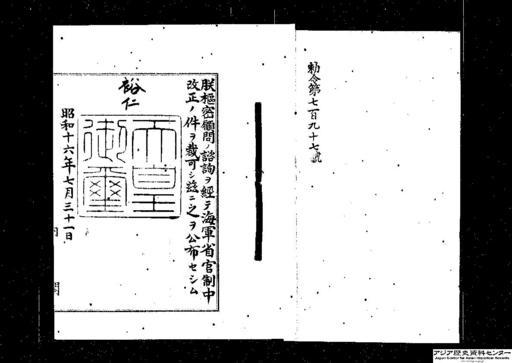 勅令第七百九十七號
朕樞密顧問ノ諮詢ヲ經テ海軍省官制中
改正ノ件ヲ裁可シ茲ニ之ヲ公布セシム
裕仁
天皇御璽
昭和十六年七月三十一日
アジア歴史資料センター
Japan Center for Asian Historical Records